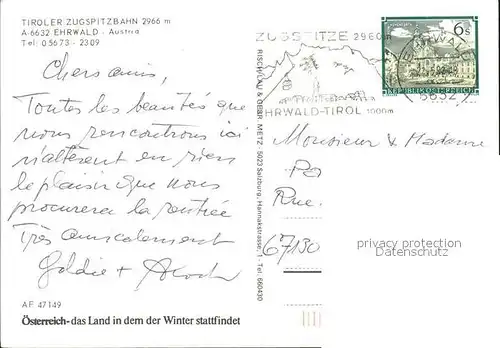 TIROLER ZUGSPITZBAHN 2966 m
A-6632 EHRWALD - Austria
Tel: 05673 - 2309
Chers amis,
Toutes les beautés que
nous rencontrons ici
n'altèrent en rien
le plaisir que nous
procurera la rentrée
Très amicalement
Goldie +
AE 47149
Österreich-das Land in dem der Winter stattfindet
RISCH-LAU & GEBR. METZ - 5023 Salzburg, Hannakstrasse, 1 - Tel. 660430
ZUGSPITZE 2960m
EHRWALD-TIROL 1000m
6S
EHRWALD
6632
REPUBLIK ÖSTERREICH
Monsieur & Madame
Rue.
67130
privacy protection
Datenschutz